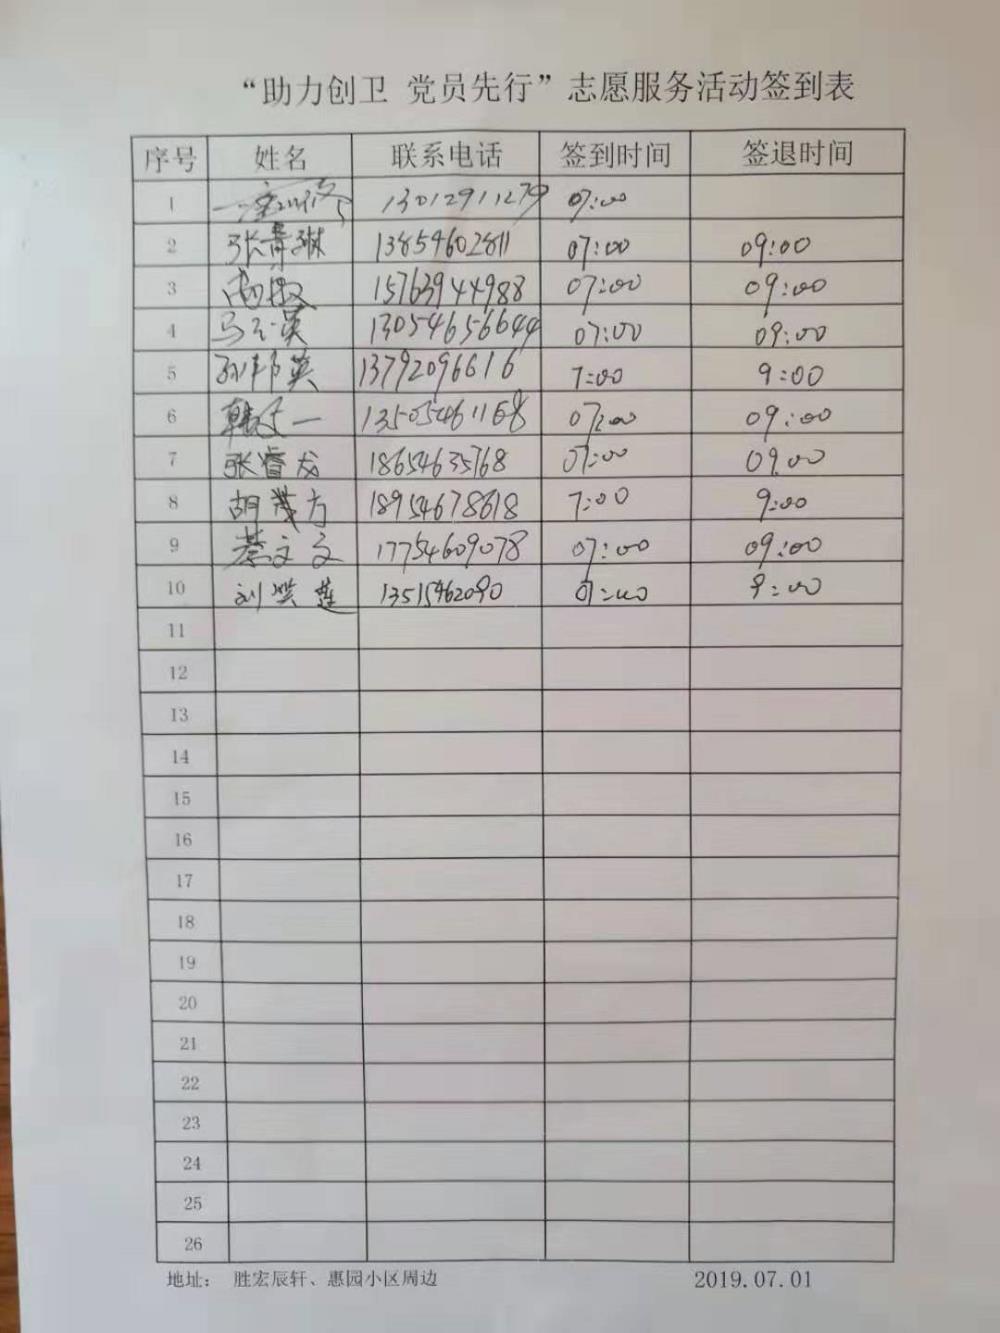 “助力创卫 党员先行”志愿服务活动签到表
序号 姓名 联系电话 签到时间 签退时间
1 13012911279 07:00
2 张青琳 13854602811 07:00 09:00
3 15763944988 07:00 09:00
4 马玉英 13054656644 07:00 09:00
5 英 13792096616 7:00 9:00
6 韩 一 13505461168 07:00 09:00
7 张睿龙 18654635768 07:00 09.00
8 胡茂方 18954678618 7:00 9:00
9 蔡文文 17754609078 07:00 09:00
10 刘洪莲 13515462090 07:00 9:00
11
12
13
14
15
16
17
18
19
20
21
22
23
24
25
26
地址： 胜宏辰轩、惠园小区周边 2019.07.01